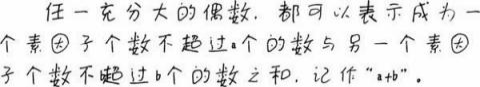 任一充分大的偶数,都可以表示成为一
个素因子个数不超过a个的数与另一个素因
子个数不超过b个的数之和,记作“a+b”。